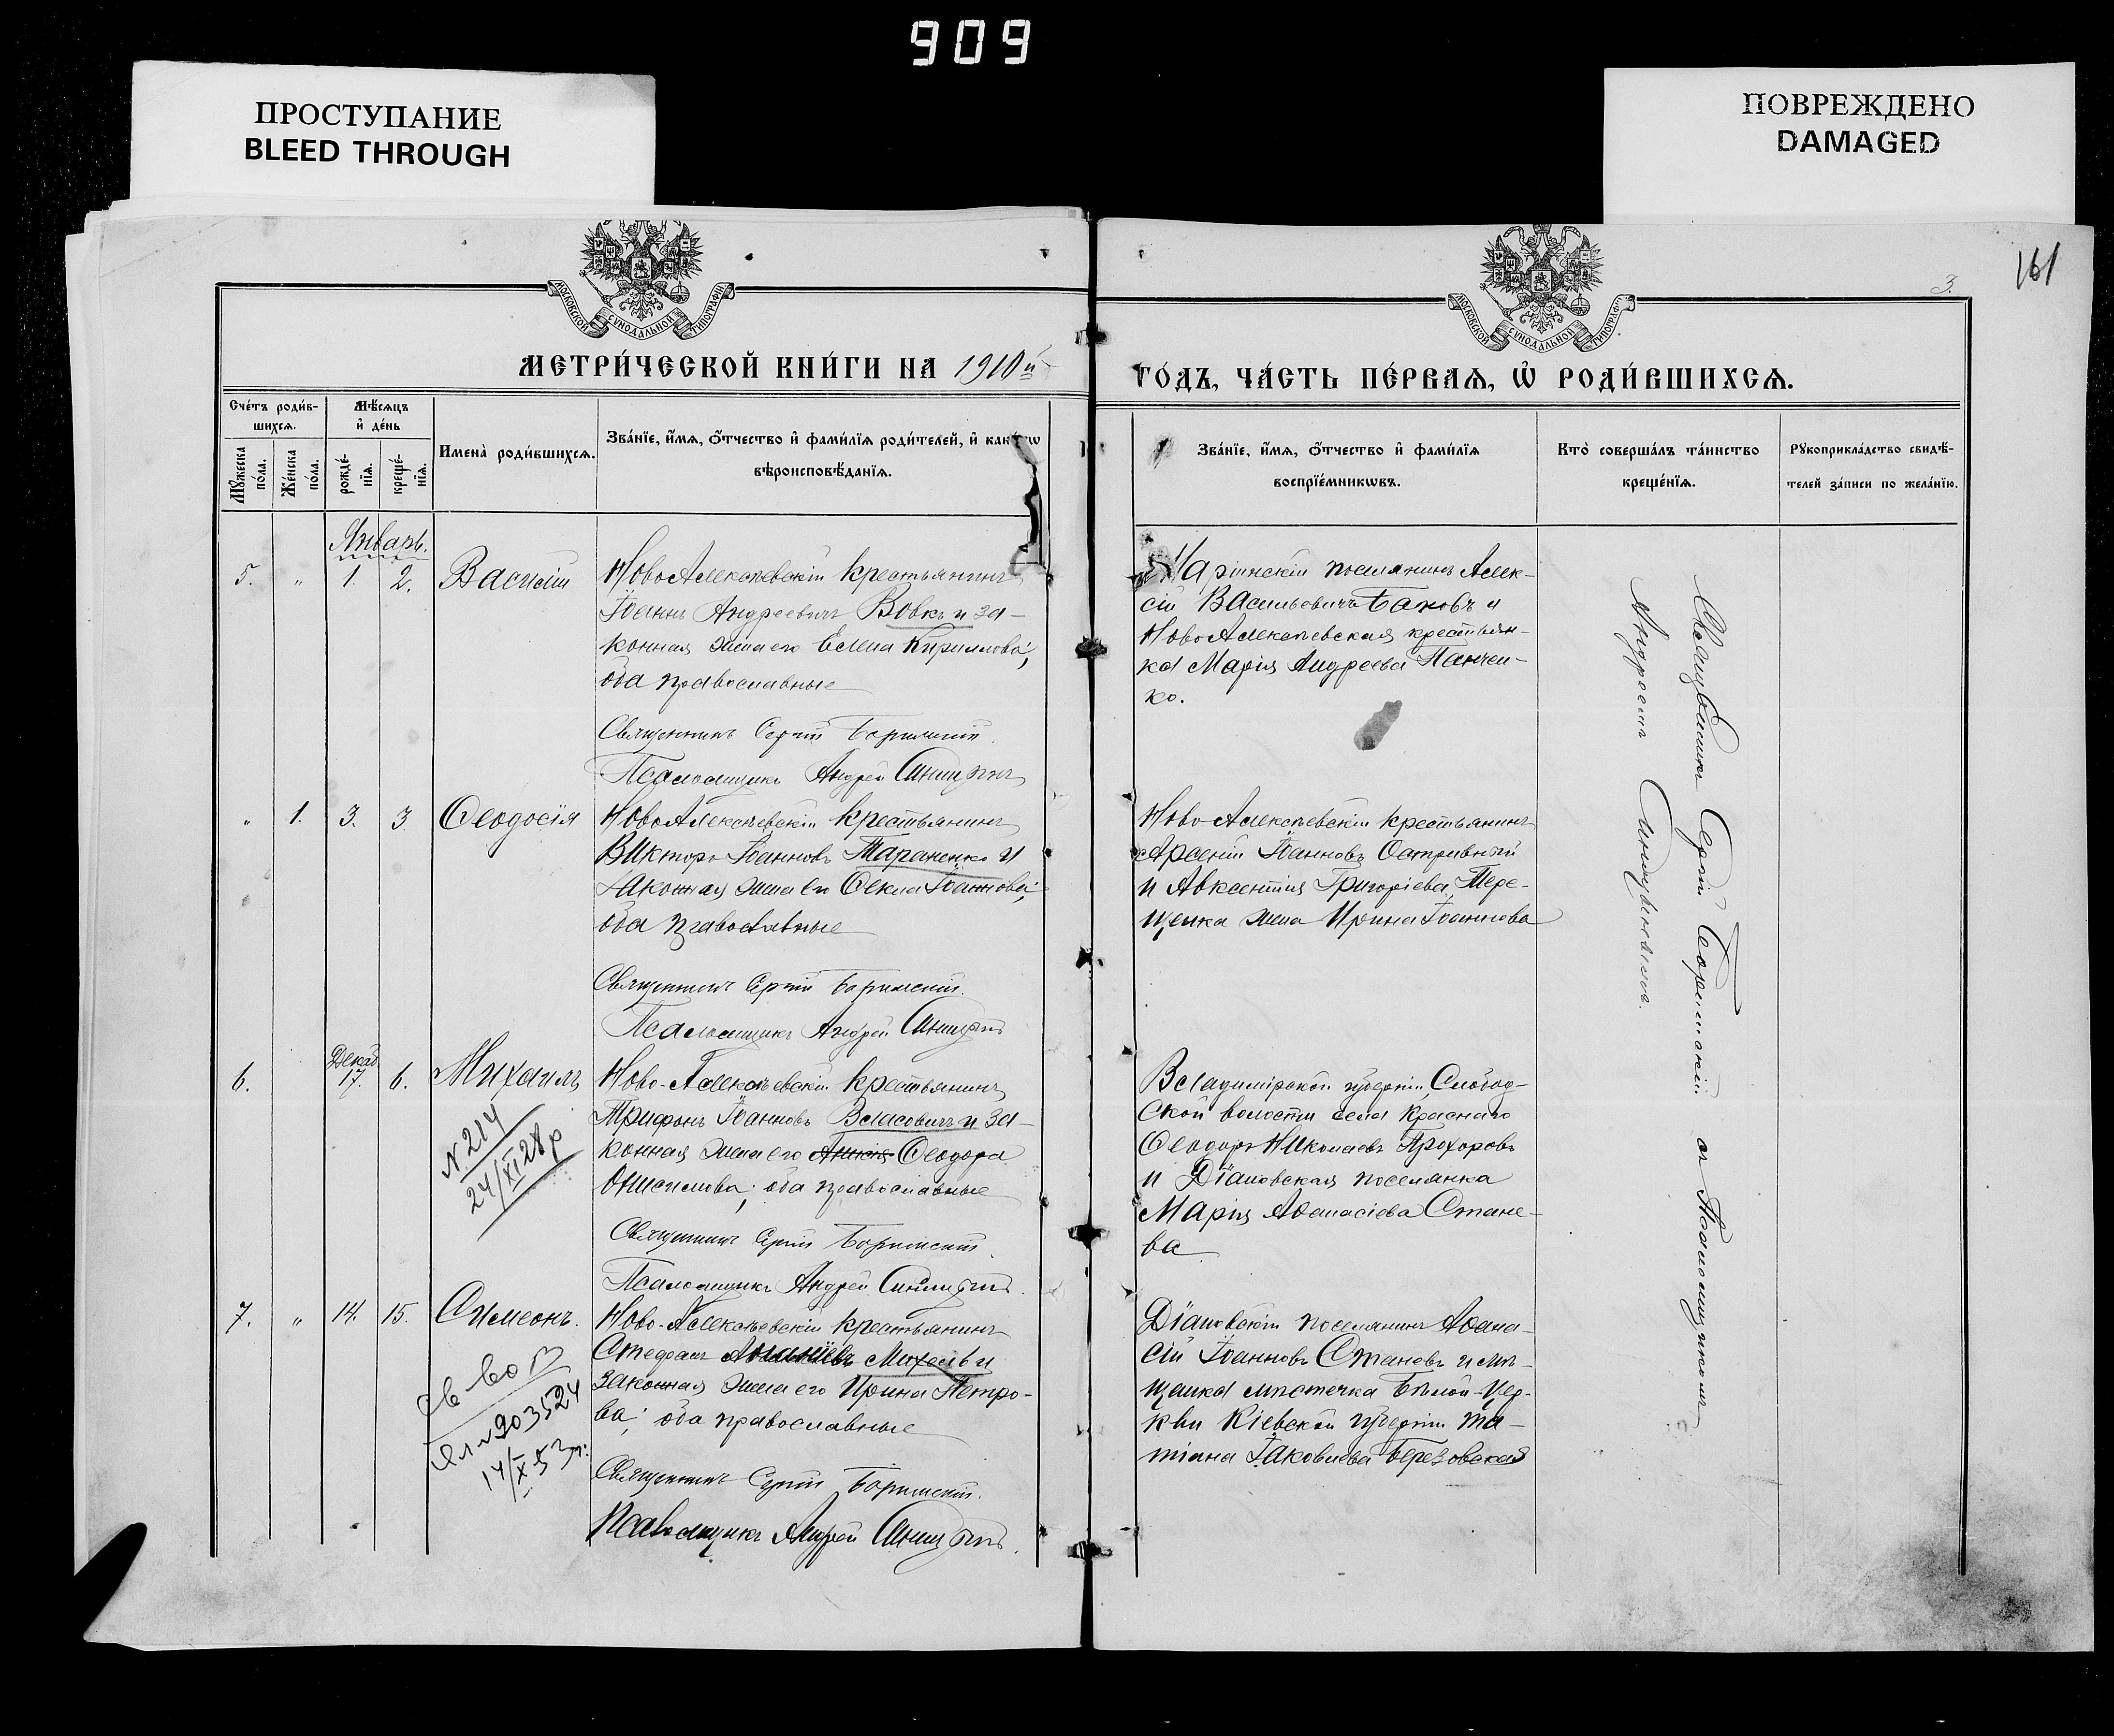 909
ПРОСТУПАНИЕ
BLEED THROUGH
ПОВРЕЖДЕНО
DAMAGED
161
3.
МОСКОВСКОЙ СѴНОДАЛЬНОЙ ТИПОГРАФІИ
МОСКОВСКОЙ СѴНОДАЛЬНОЙ ТИПОГРАФІИ
МЕТРИ́ЧЕСКОЙ КНИ́ГИ НА 1910й
ГО́ДЪ, ЧА́СТЬ ПЕ́РВАѦ, Ѡ҆ РОДИ́ВШИХСѦ.
Сче́тъ роди́в-
шихсѧ.
Мꙋ́жеска по́ла.
Же́нска по́ла.
Мѣ́сѧцъ
и҆ де́нь
рожде́-
нїѧ.
креще́-
нїѧ.
Имена̀ роди́вшихсѧ.
Зва́нїе, и҆́мѧ, ѻ҆́тчество и҆ фами́лїѧ роди́телей, и҆ како́гѡ
вѣроисповѣ́данїѧ.
Зва́нїе, и҆́мѧ, ѻ҆́тчество и҆ фами́лїѧ
воспрїе́мникѡвъ.
Кто̀ соверша́лъ та́инство
креще́нїѧ.
Рꙋкоприкла́дство свидѣ́-
телей за́писи по жела́нїю.
Январь.
5. " 1. 2. Василій
НовоАлексѣевскій крестьянинъ
Іоаннъ Андреевичъ Вовкъ и за-
конная жена его Елена Кириллова;
оба православные
Священникъ Сергій
Псаломщикъ Андрей
Маріинскій поселянинъ Алек-
сій Васильевичъ Баковъ и
НовоАлексѣевская крестьян-
ка Марія Андреева Панчен-
ко.
" 1. 3. 3. Ѳеодосія
НовоАлексѣевскій крестьянинъ
Викторъ Іоанновъ Тараненко и
законная жена его Ѳекла Іоаннова;
оба православные
Священникъ Сергій
Псаломщикъ Андрей
Ново-Алексѣевскій крестьянинъ
Арсеній Іоанновъ
и Авксентія Григоріева Тере-
щенка жена Ирина Іоаннова
6. Декаб 17. 6. Михаилъ
N 214
24/XI 28 р
Ново-Алексѣевскій крестьянинъ
Трифонъ Іоанновъ Власовичъ и за-
конная жена его Ѳеодора
Онисимова; оба православные
Священникъ Сергій
Псаломщикъ Андрей
Владимірской губерніи, Слобод-
ской волости села Краснаго
Ѳеодоръ Николаевъ Прохоровъ
и Діановская поселянка
Марія Аѳанасіева Стане-
ва
7. " 14. 15. Симеонъ.
св-во
903524
14/X 53 г.
Ново-Алексѣевскій крестьянинъ
Стефанъ Ананіевъ Михель и
законная жена его Ирина Петро-
ва; оба православные
Священникъ Сергій
Псаломщикъ Андрей
Діановскій поселянинъ Аѳана-
сій Іоанновъ Становъ и мѣ-
щанка мѣстечка Бѣлой-Цер-
кви Кіевской губерніи Та-
тіана Іаковлева Березовская
Священникъ Сергій съ Псаломщикомъ
Андреемъ